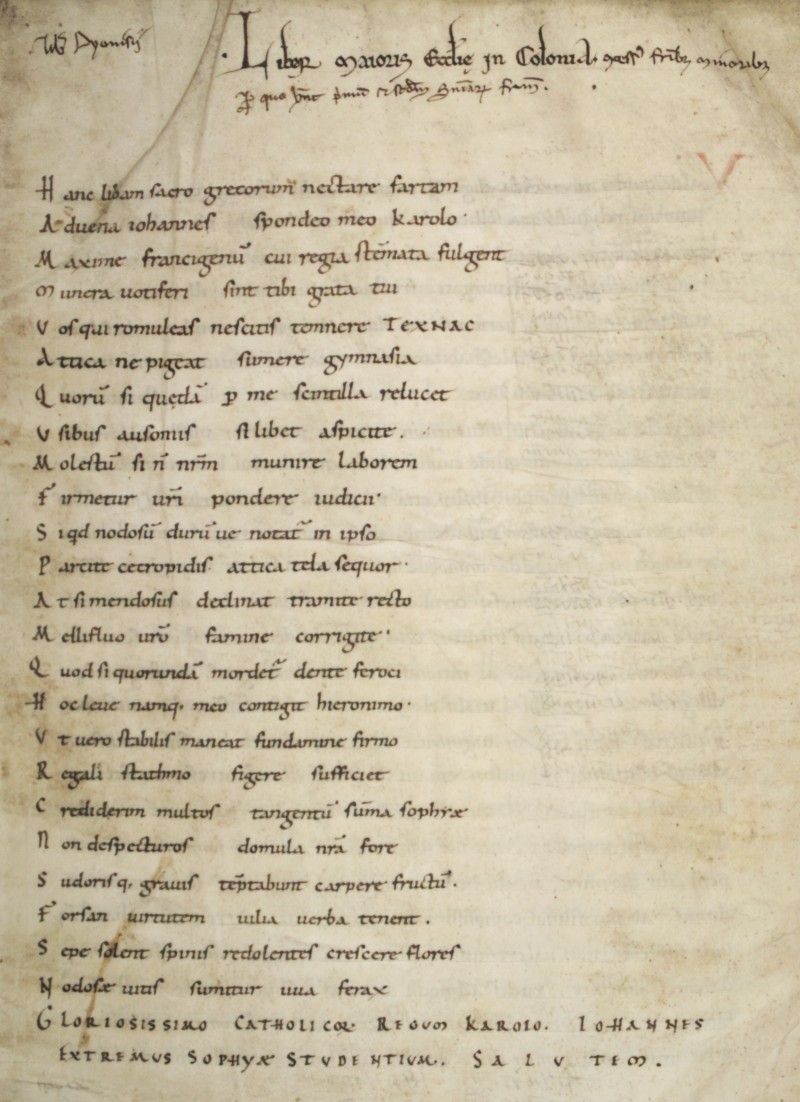 Dyonisij
Liber maioris Ecclie in Colonia. fribz minoribz
H anc libam sacro grecorum nectare fartam
A duena iohannes spondeo meo karolo.
M axime francigenū cui regia stēmata fulgent
M unera uotiferi sint tibi grata tui
V os qui romuleas nescitis temnere TEXNAC
A ttica ne pigeat sumere gymnasia
Q uorū si quędā p me scintilla relucet
V sibus ausoniis si libet aspicite.
M olestū si n̄ nrm̄ munire laborem
F irmetur uri pondere iudicii.
S i qd nodosū durū ue notat in ipso
P arcite cecropidis attica tela sequor.
A t si mendosus declinat tramite recto
M ellifluo urō famine corrigite.
Q uod si quorundā mordet dente feroci
H oc leue namq; meo contigit hieronimo.
V t uero stabilis maneat fundamine firmo
R egali stathmo figere sufficiet
C rediderim multos tangentū sūma sophyæ
N on despecturos domula nrā fore
S udorisq; grauis tēptabunt carpere fructū.
F orsan uirtutem uilia uerba tenent.
S epe solent spinis redolentes crescere flores
N odosæ uitis sumitur uua ferax
GLORIOSISSIMO CATHOLICOR REGUM KAROLO. IOHANNES
EXTREMUS SOPHYÆ STVDENTIUM. SALVTEM.